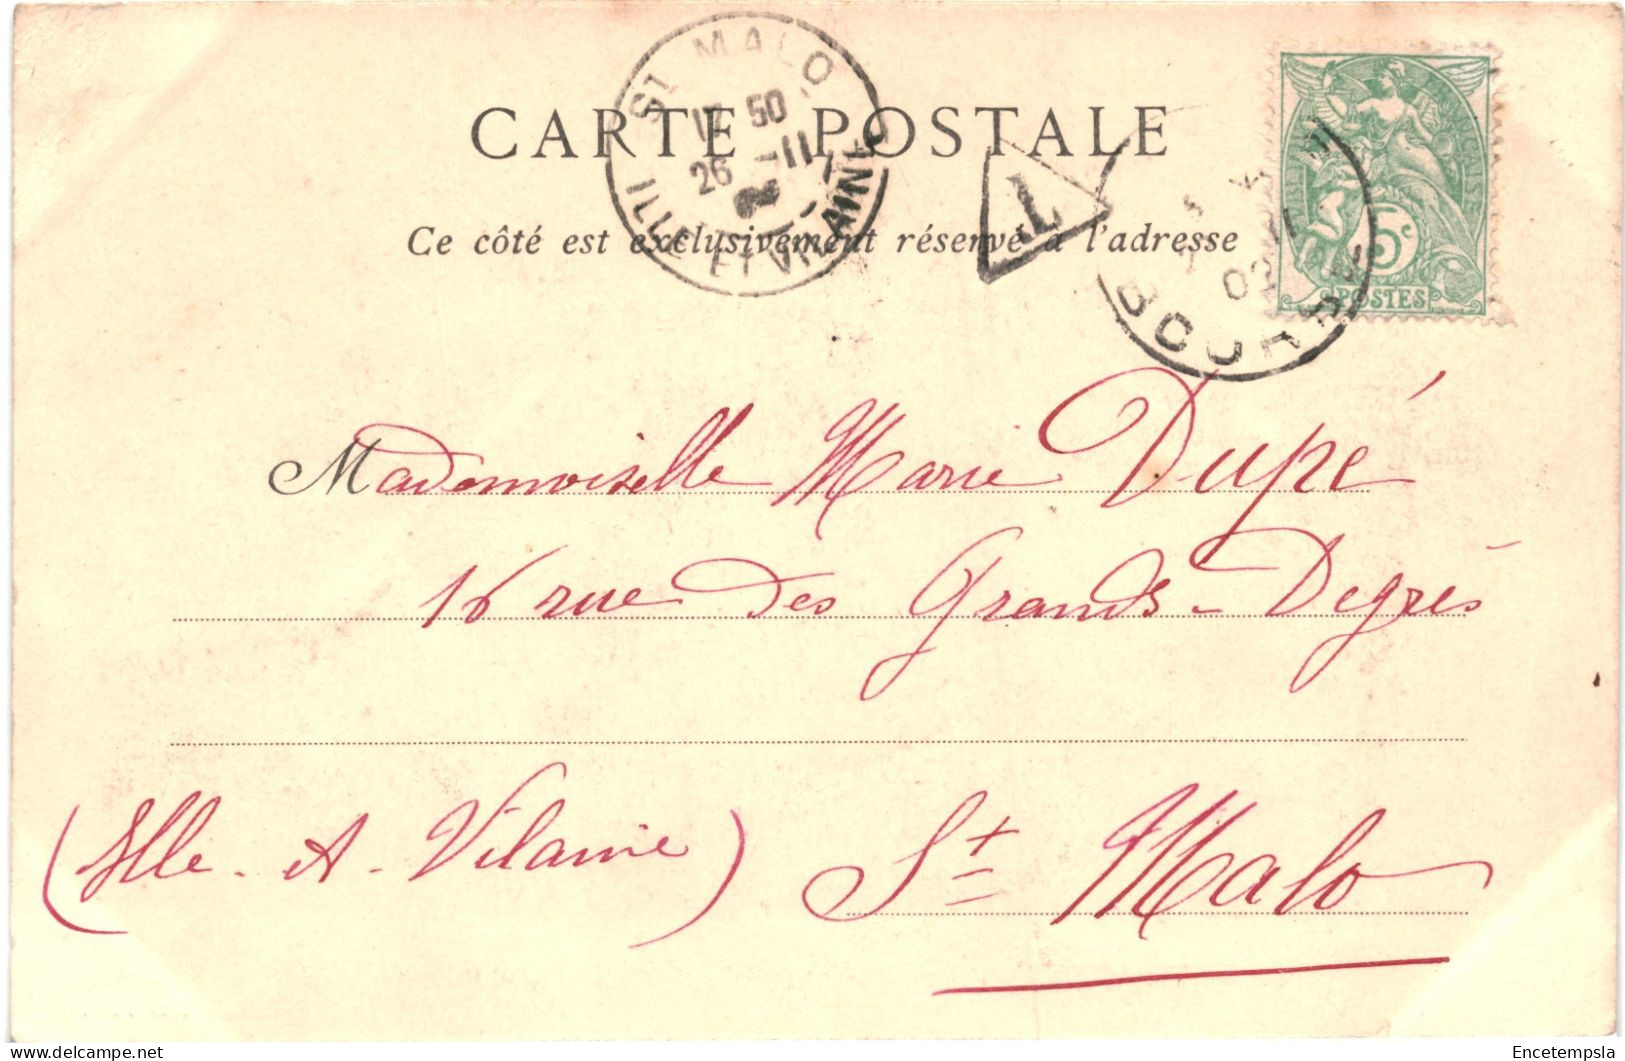 ST MALO
17 50
26 -11
ILLE ET VILAINE
CARTE POSTALE
Ce côté est exclusivement réservé à l'adresse
T
02
BOURSE
5c
POSTES
Mademoiselle Marie Dupé
16 rue des Grands-Degrés
(Ille-et-Vilaine) St Malo
Encetempsla